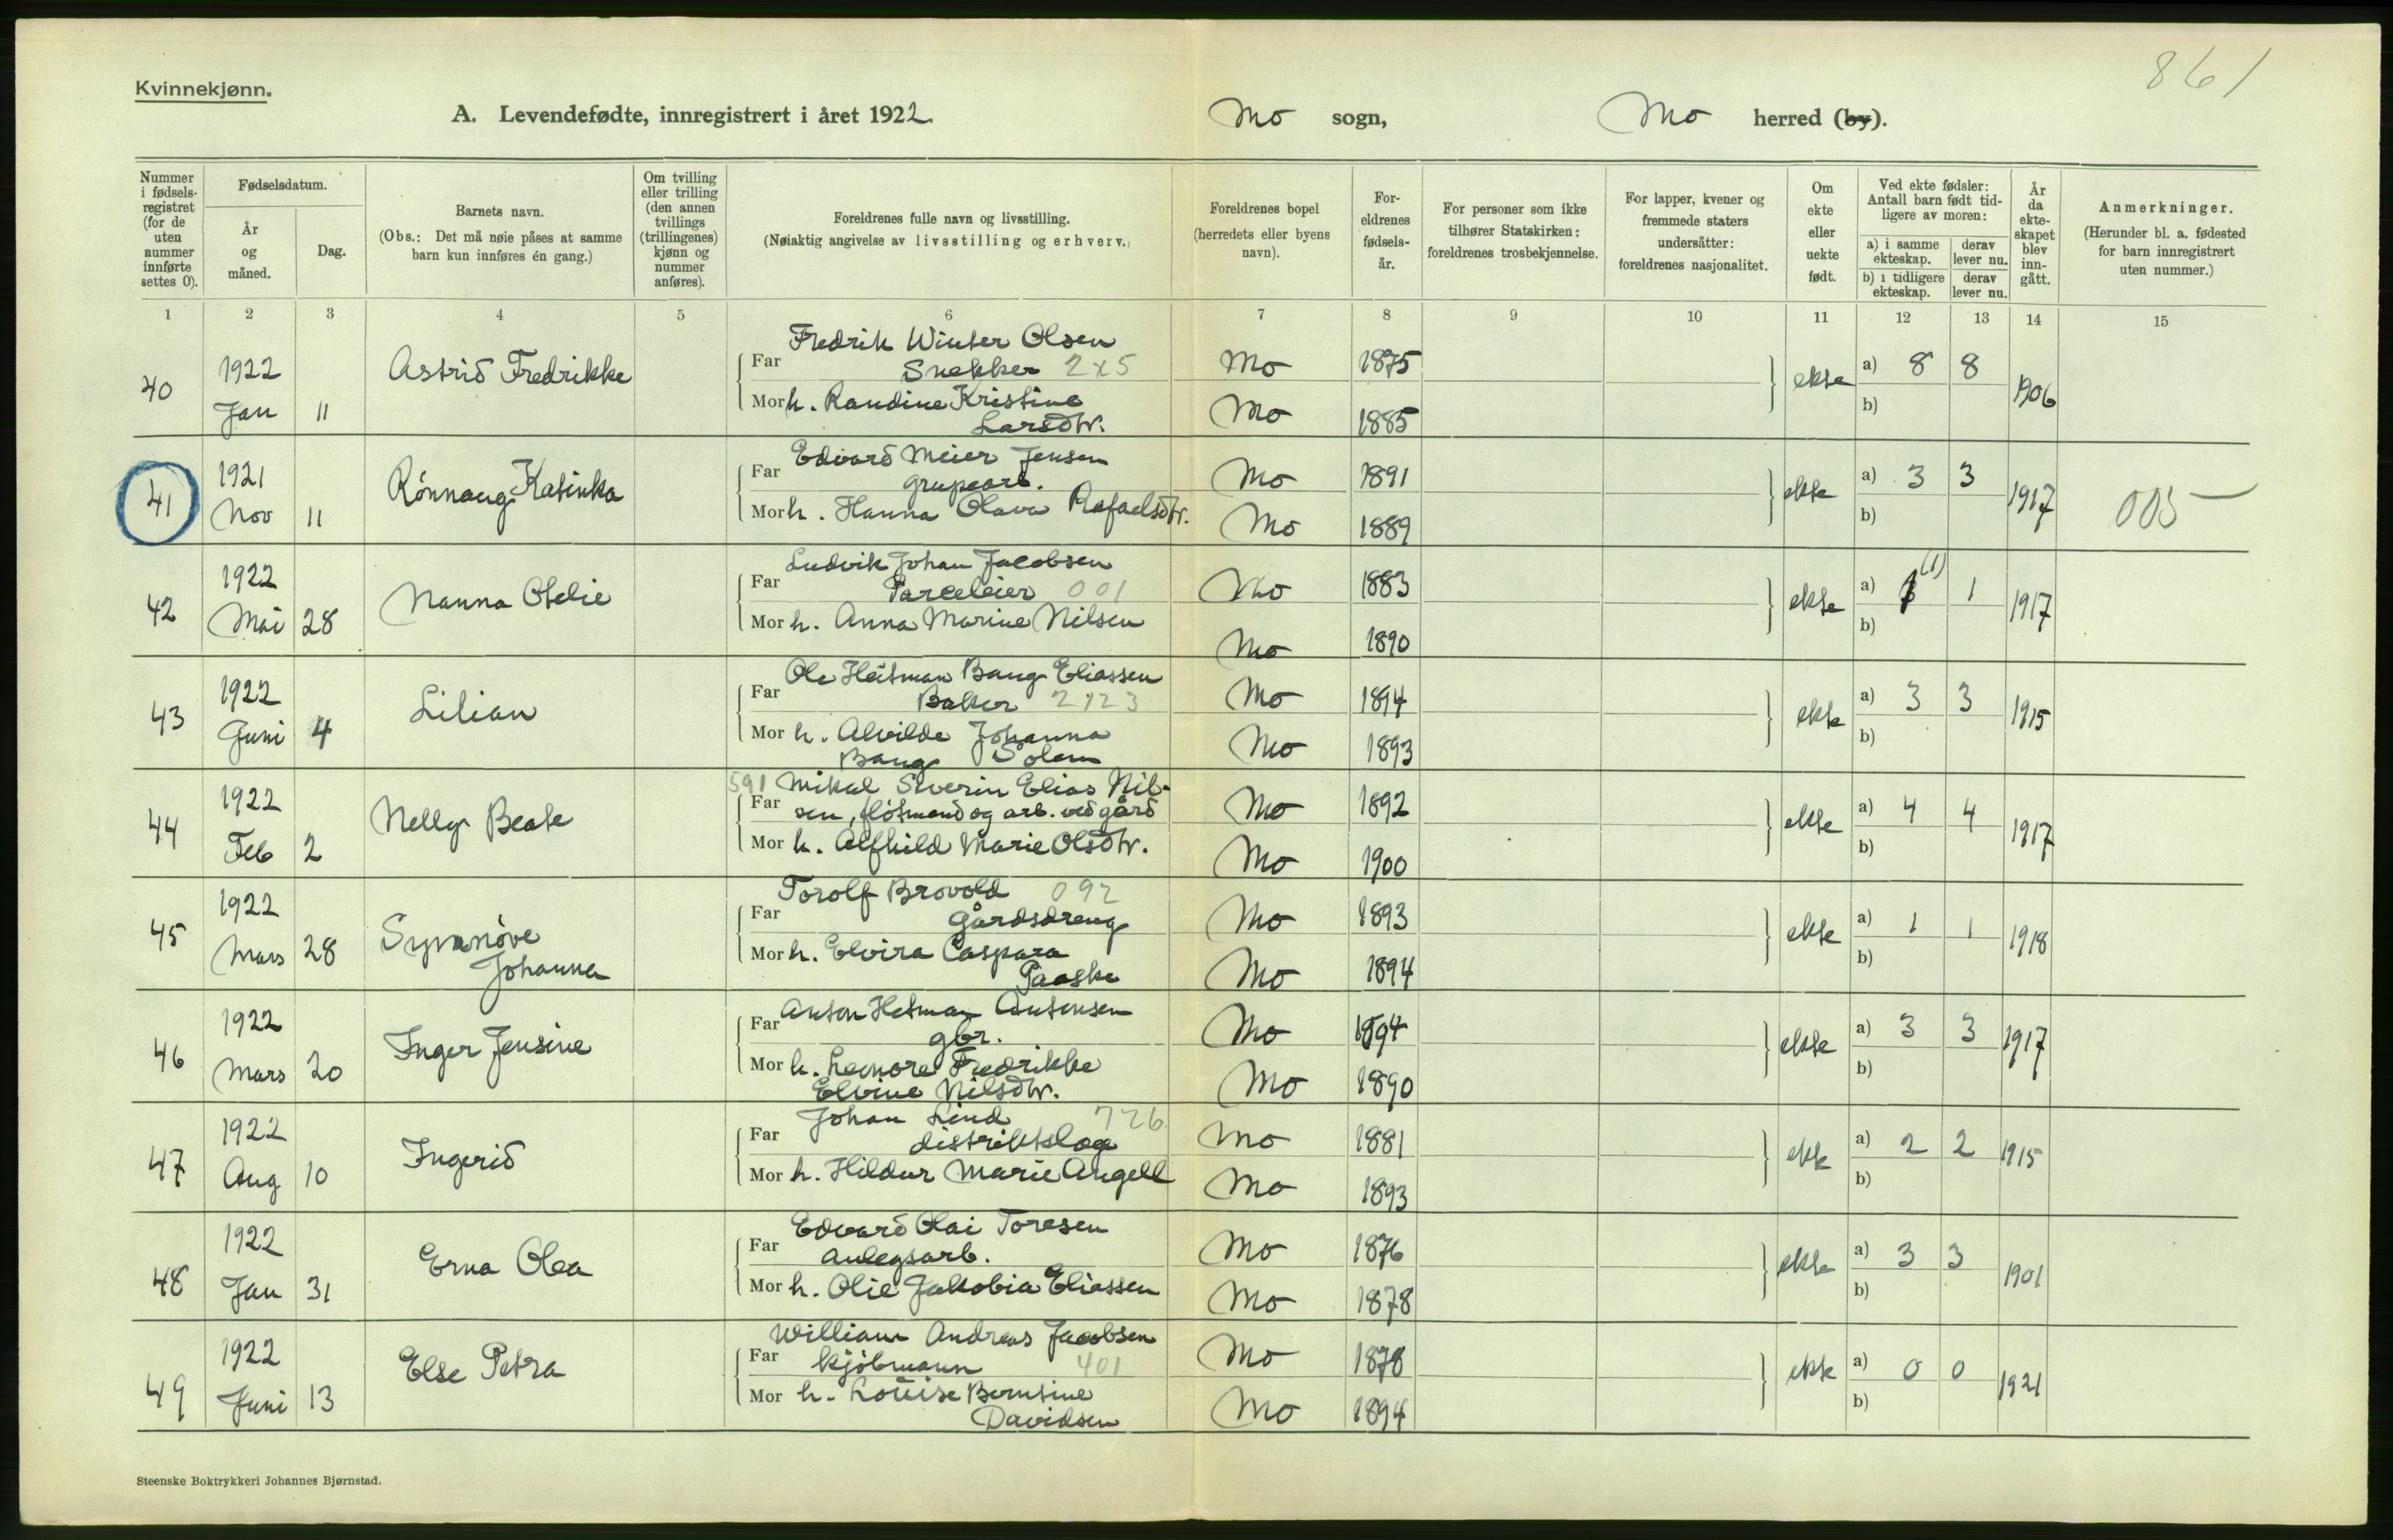 861
Kvinnekjønn.
A. Levendefødte, innregistrert i året 1922. Mo sogn, Mo herred (by).
Nummer i fødsels-registret (for de uten nummer innførte settes 0).
Fødselsdatum.
År og måned.
Dag.
Barnets navn.
(Obs.: Det må nøie påses at samme barn kun innføres én gang.)
Om tvilling eller trilling (den annen tvillings (trillingenes) kjønn og nummer anføres).
Foreldrenes fulle navn og livsstilling.
(Nøiaktig angivelse av livsstilling og erhverv.)
Foreldrenes bopel (herredets eller byens navn).
For-eldrenes fødsels-år.
For personer som ikke tilhører Statskirken: foreldrenes trosbekjennelse.
For lapper, kvener og fremmede staters undersåtter: foreldrenes nasjonalitet.
Om ekte eller uekte født.
Ved ekte fødsler: Antall barn født tid-ligere av moren:
a) i samme ekteskap. derav lever nu.
b) i tidligere ekteskap. derav lever nu.
År da ekte-skapet blev inn-gått.
Anmerkninger.
(Herunder bl. a. fødested for barn innregistrert uten nummer.)
1 2 3 4 5 6 7 8 9 10 11 12 13 14 15
40 1922 Jan 11 Astrid Fredrikke
Fredrik Winter Olsen
Far Snekker 2x5 Mo 1875
Mor h. Randine Kristine
Larsdtr. Mo 1885
ekte a) 8 8 b) 1906
41 1921 Nov 11 Rönnaug Katinka
Edvard Meier Jensen
Far grupearb. Mo 1891
Mor h. Hanna Olava Rafaelsdtr. Mo 1889
ekte a) 3 3 b) 1917 005
42 1922 Mai 28 Nanna Otelie
Ludvik Johan Jacobsen
Far Parceleier 001 Mo 1883
Mor h. Anna Marine Nilsen Mo 1890
ekte a) (1) 1 b) 1917
43 1922 Juni 4 Lilian
Ole Heitman Bang Eliassen
Far Baker 2x23 Mo 1894
Mor h. Alvilde Johanna
Bang Solem Mo 1893
ekte a) 3 3 b) 1915
44 1922 Feb 2 Nelly Beate
591 Mikal Severin Elias Nil-
Far sen, fløtmand og arb. ved gård Mo 1892
Mor h. Alfhild Marie Olsdtr. Mo 1900
ekte a) 4 4 b) 1917
45 1922 Mars 28 Synnöve Johanna
Torolf Brovold 092
Far gårdsdreng Mo 1893
Mor h. Elvira Caspara
Paaske Mo 1894
ekte a) 1 1 b) 1918
46 1922 Mars 20 Inger Jensine
Anton Hetman Antonsen
Far gbr. Mo 1894
Mor h. Leonore Fredrikke
Elvine Nilsdtr. Mo 1890
ekte a) 3 3 b) 1917
47 1922 Aug 10 Ingerid
Johan Lind 726
Far distriktslæge Mo 1881
Mor h. Hildur Marie Angell Mo 1893
ekte a) 2 2 b) 1915
48 1922 Jan 31 Erna Olea
Edvard Olai Toresen
Far anlegsarb. Mo 1876
Mor h. Olie Jakobia Eliassen Mo 1878
ekte a) 3 3 b) 1901
49 1922 Juni 13 Else Petra
William Andreas Jacobsen
Far kjöbmann 401 Mo 1878
Mor h. Louise Berntine
Davidsen Mo 1894
ekte a) 0 0 b) 1921
Steenske Boktrykkeri Johannes Bjørnstad.